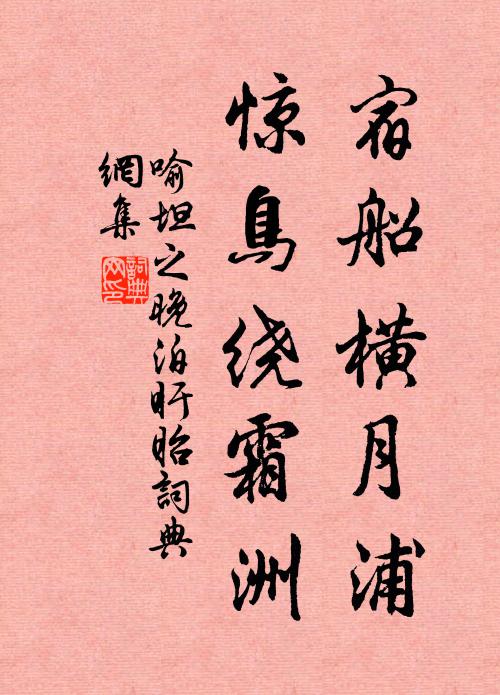 宿船横月浦
惊鳥绕霜洲
喻坦之晚泊盱眙詞典
網集
詞典
网印